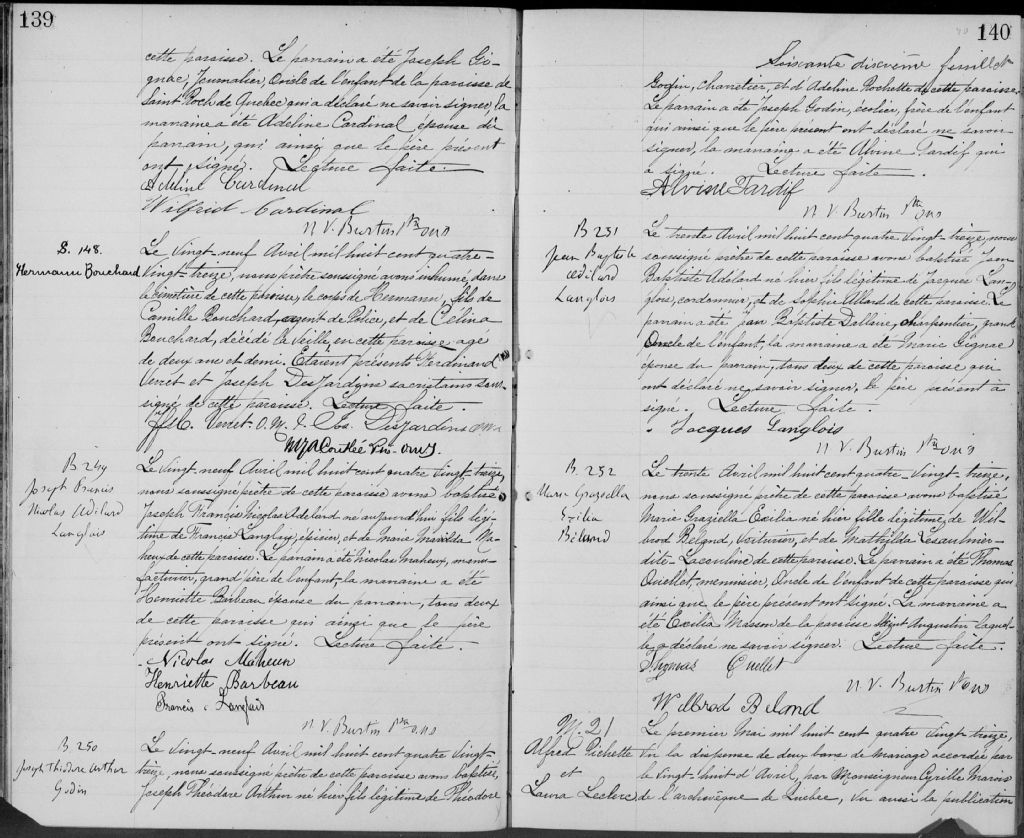 139
cette paroisse. Le parrain a été Joseph Gi-
gnac, Journalier, Oncle de l'enfant de la paroisse de
Saint Roch de Quebec qui a déclaré ne savoir signer, la
marraine a été Adeline Cardinal épouse du
parrain, qui ainsi que le père présent
ont signé. Lecture faite.
Adeline Cardinal
Wilfrid Cardinal
S. 148.
Hermann Bouchard
Le vingt-neuf Avril mil huit cent quatre-
vingt-treize, nous prêtre soussigné avons inhumé dans
le cimetière de cette paroisse, le corps de Hermann, fils de
Camille Bouchard, agent de Police, et de Célina
Bouchard, décédé la veille, en cette paroisse agé
de deux ans et demi. Etaient présents Ferdinand
Verret et Joseph DesJardins sacristains sous-
signés de cette paroisse. Lecture faite.
Verret Jos. DesJardins
B 249
Joseph Francis
Nicolas Adélard
Langlois
Le vingt-neuf Avril mil huit cent quatre vingt-treize,
nous soussigné prêtre de cette paroisse avons baptisé
Joseph Francis Nicolas Adelard né aujourd'hui fils légi-
time de Francis Langlois, épicier, et de Marie Mavilda Ma-
heux de cette paroisse. Le parrain a été Nicolas Maheux, manu-
facturier, grand'père de l'enfant la marraine a été
Henriette Barbeau épouse du parrain, tous deux
de cette paroisse qui ainsi que le père
présent ont signé. Lecture faite.
Nicolas Maheux
Henriette Barbeau
Francis Langlois
B 250
Joseph Théodore Arthur
Godin
Le vingt-neuf Avril mil huit cent quatre vingt-
treize, nous soussigné prêtre de cette paroisse avons baptisé,
Joseph Théodore Arthur né hier fils légitime de Théodore
140
Soixante dixième feuillet
Godin, Charretier, et d'Adeline Rochette de cette paroisse.
Le parrain a été Joseph Godin, écolier, frère de l'enfant
qui ainsi que le père présent ont déclaré ne savoir
signer, la marraine a été Alvine Tardif qui
a signé. Lecture faite.
Alvine Tardif
B 251
Jean Baptiste
Adélard
Langlois
Le trente Avril mil huit cent quatre vingt-treize, nous
soussigné prêtre de cette paroisse avons baptisé Jean
Baptiste Adélard né hier fils légitime de Jacques Lan-
glois, cordonnier, et de Sophie Allard de cette paroisse. Le
parrain a été Jean Baptiste Dellaire, charpentier, grand
Oncle de l'enfant, la marraine a été Marie Gignac
épouse du parrain, tous deux de cette paroisse qui
ont déclaré ne savoir signer, le père présent a
signé. Lecture faite.
Jacques Langlois
B. 252
Marie Graziella
Exilia
Béland
Le trente Avril mil huit cent quatre-vingt-treize,
nous soussigné prêtre de cette paroisse avons baptisé
Marie Graziella Exilia né hier fille légitime de Wil-
brod Beland, voiturier, et de Mathilde Lesaulnier-
dite-Lacouline de cette paroisse. Le parrain a été Thomas
Ouellet, menuisier, Oncle de l'enfant de cette paroisse qui
ainsi que le père présent ont signé. La marraine a
été Exilia Masson de la paroisse Saint Augustin laquel-
le a déclaré ne savoir signer. Lecture faite.
Thomas Ouellet
Wilbrod Beland
M. 21
Alfred Pichette
et
Laura Leclerc
Le premier Mai mil huit cent quatre vingt treize,
Vu la dispense de deux bans de mariage accordée par
le vingt-huit d'Avril, par Monseigneur Cyrille Marois
de l'archevêque de Quebec, vu aussi la publication